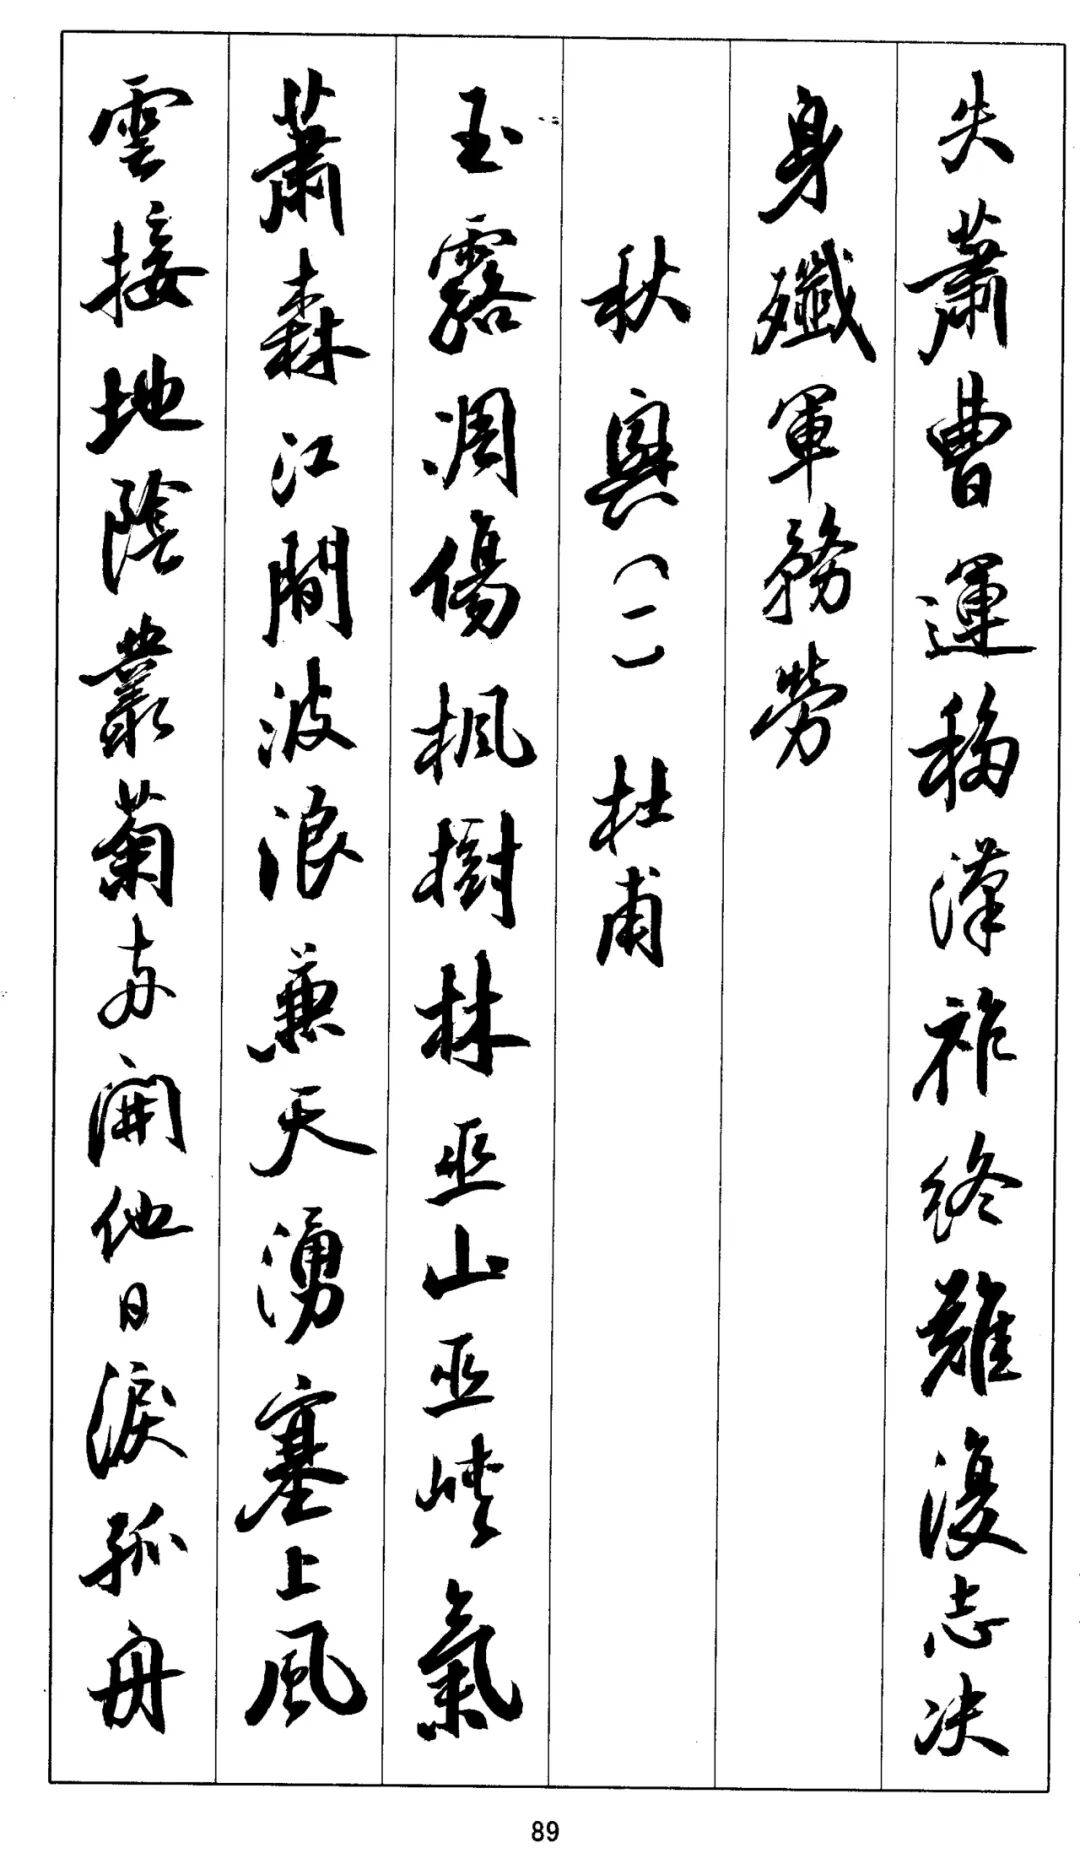 失蕭曹運移漢祚終難復志决
身殲軍務勞
秋興(一) 杜甫
玉露凋傷楓樹林巫山巫峽氣
蕭森江間波浪兼天湧塞上風
雲接地陰叢菊兩開他日淚孤舟
89